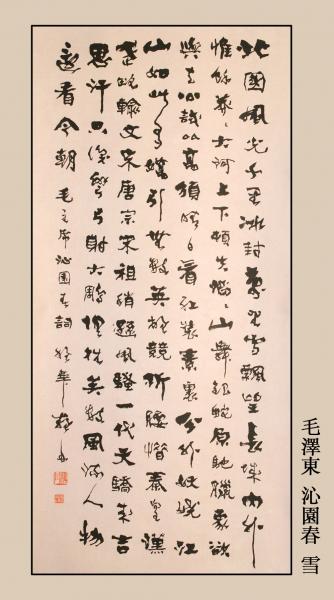 北國風光千里冰封萬里雪飄望長城內外
惟餘莽〻大河上下頓失滔〻山舞銀蛇原馳臘象欲
與天公試比高須晴日看紅裝素裹分外妖嬈江
山如此多嬌引無數英雄競折腰惜秦皇漢
武略輸文采唐宗宋祖稍遜風騷一代天驕成吉
思汗只識彎弓射大鵰俱往矣數風流人物
還看今朝 毛主席沁園春詞
毛澤東 沁園春 雪